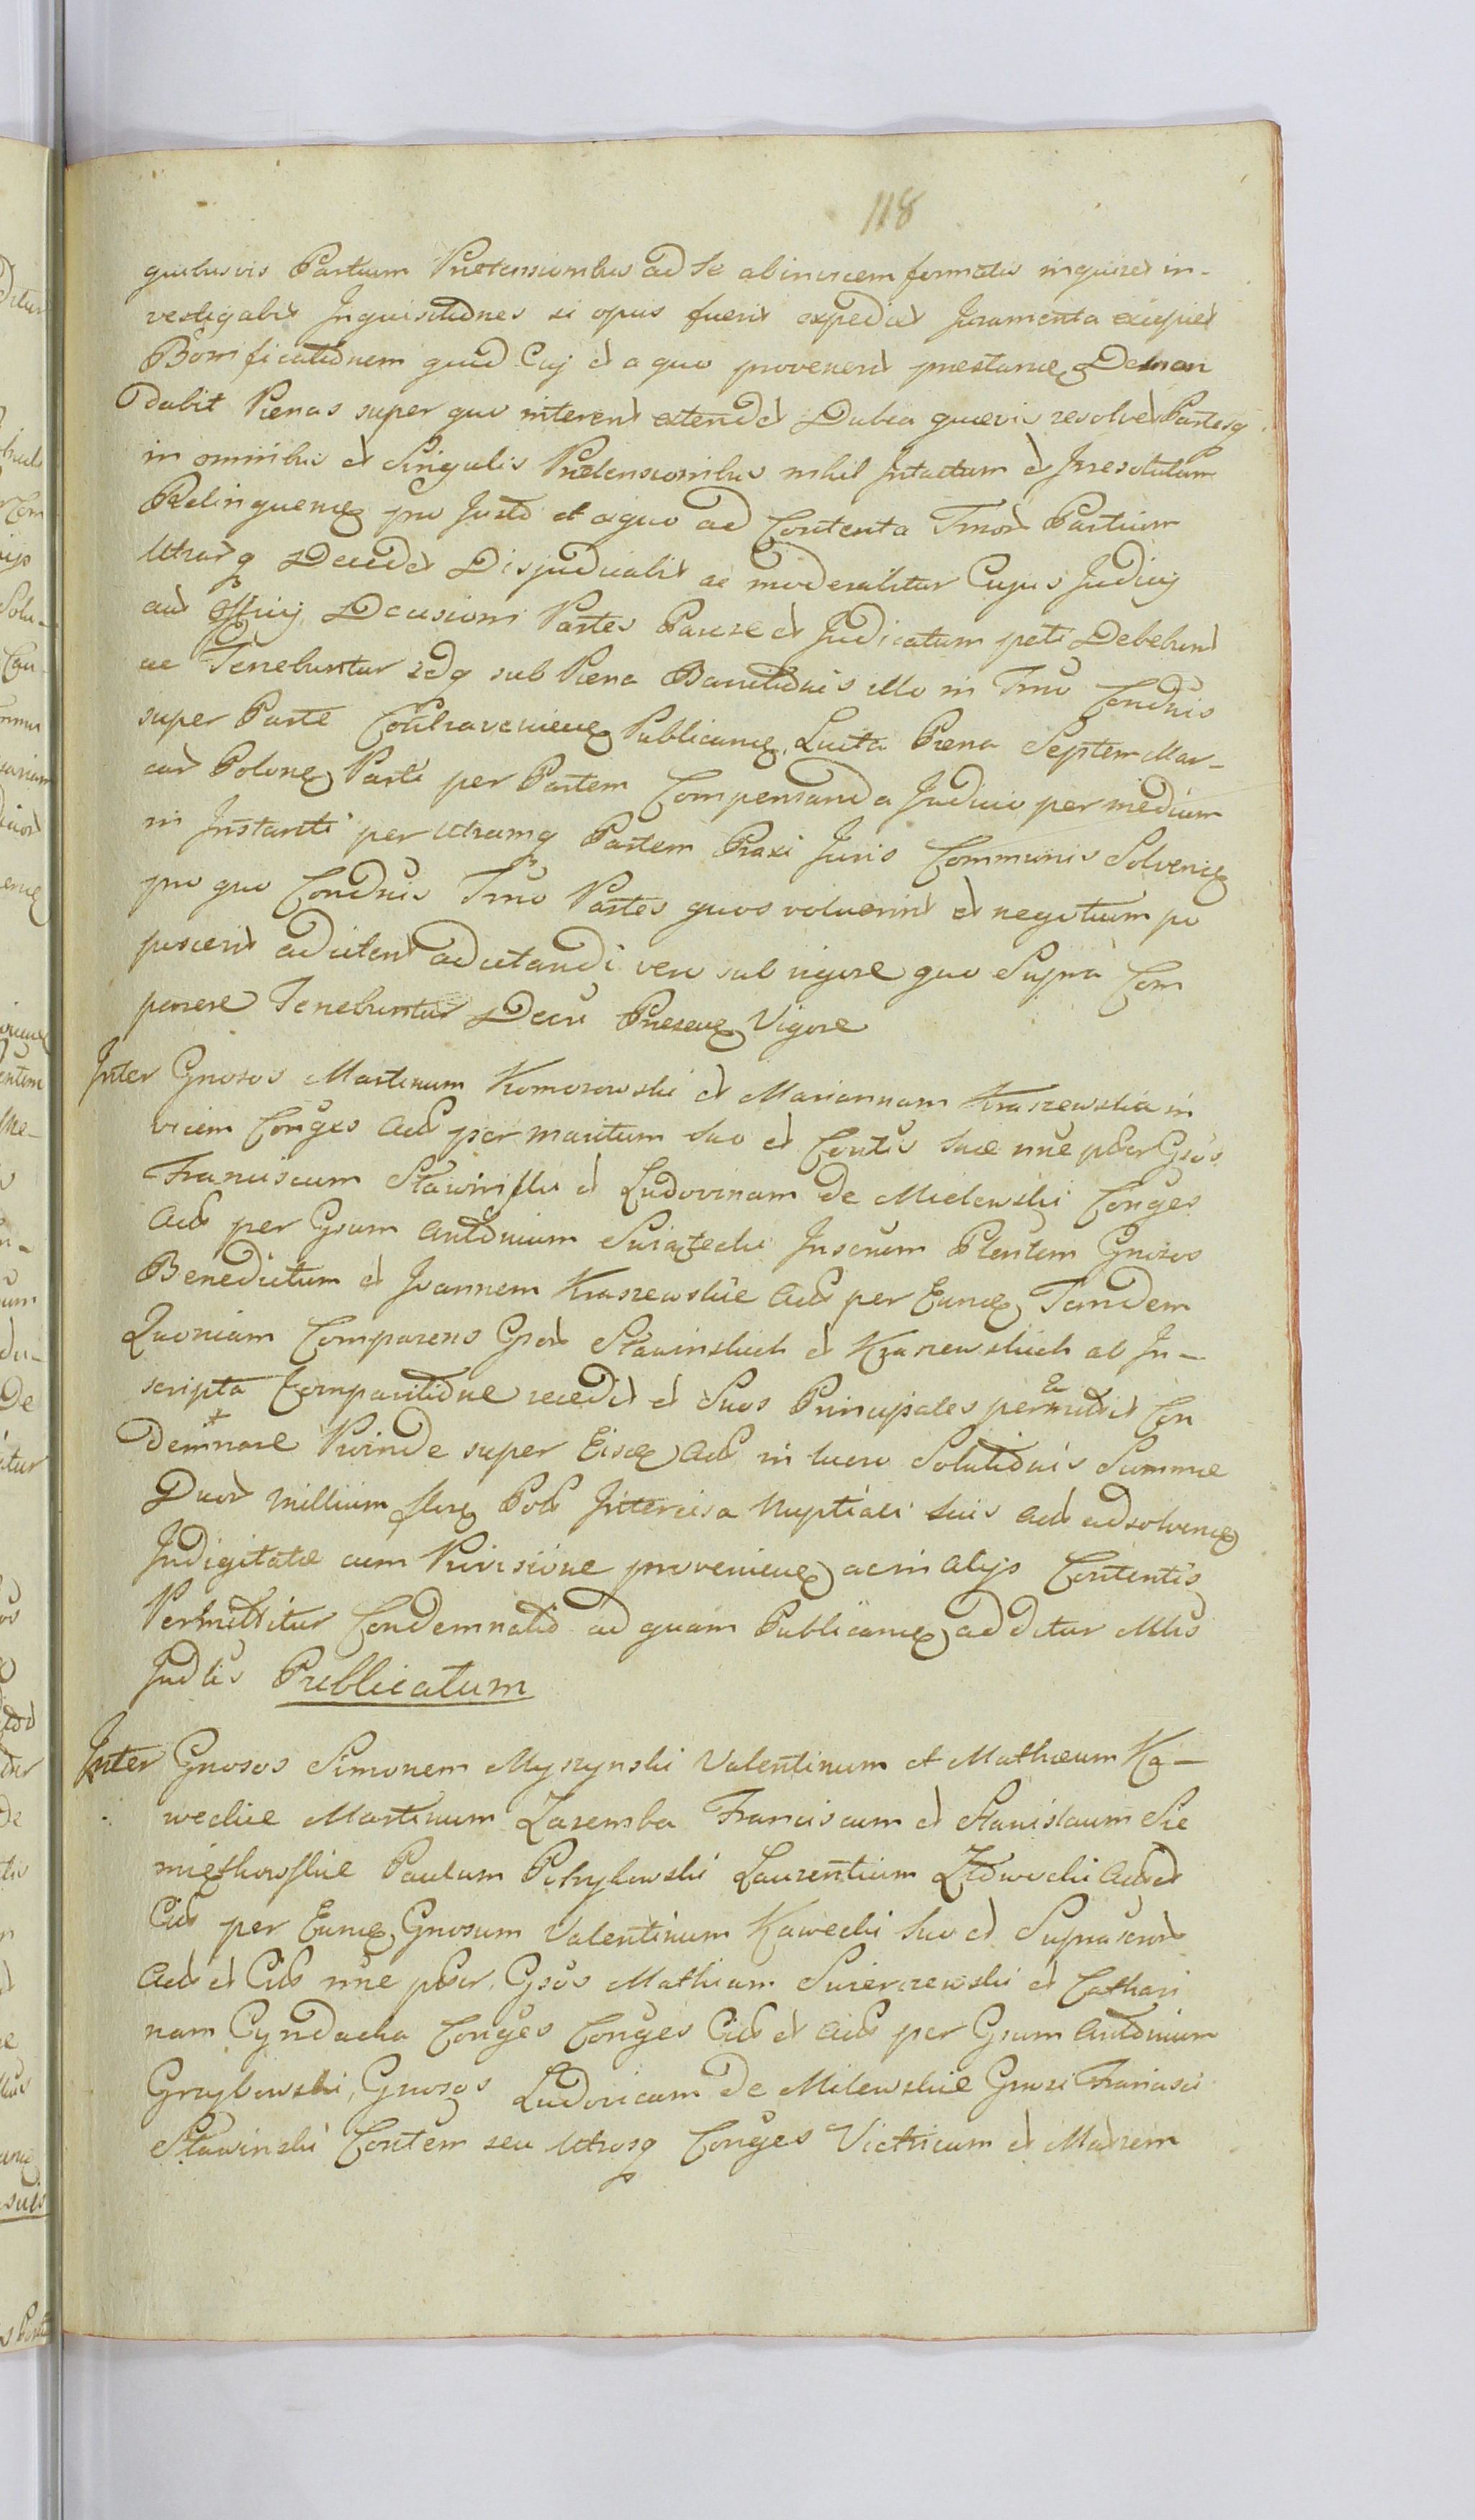 118
quibusvis Partium Prætensionibus ad se abinvicem formatis inquiret in-
vestigabit Inquisitiones si opus fuerit expediet Juramenta excipiet
Bonificationem quid Cuj et a quo provenerit prestanẹ Deman
dabit Pænas super quo intererit extendet Dubia quævis resolvet Partesq
in omnibus et Singulis Prætensionibus nihil Intactum et Irresolutum
Relinquenẹ pro Justo et æquo ad Contenta Tmor Partium
Utrarq Decidet Disjudicabit ac moderabitur Cujus Judicij
aut Officij Decisioni Partes Parere et Judicatum pati Debebunt
ac Tenebuntur idq sub Pæna Banitionis illo in Tmo Condnis
super Parte Contravenienẹ Publicanẹ. Luita Pæna Septem Mar-
car Polonẹ Parti per Partem Compensanda Judicio per medium
in Instanti per Utramq Partem Praxi Juris Communis Solvenẹ
pro quo Condnis Tmo Partes quos voluerint et negotium po
poscerit adcitent adcitandi vero sub rigore quo Supra Com
parere Tenebuntur Decri Presenẹ Vigore
Inter Gnosos Martinum Komorowski et Mariannam Kraszewska in
vicem Conges Acts per maritum suo et Contis suæ nne pser Gsos
Franciscum Sławinski et Ludovinam de Milewski Conges
Acts per Gsum Antonium Swiątecki Inserum Plentem Gnosos
Benedictum et Joannem Kraszewskie Acts per Eunẹ Tandem
Quoniam Comparens Gsor Sławinskich et Kraszewskich ab In-
scripta Comparitione recedit et Suos Principales permittit Con
demnare Proinde super Eisdẹ Acts in lucro Solutionis Summæ
Duor millium flor Pols Intercisa Nuptiali suis Acts adsolvenẹ
Indigitatæ cum Provisione provenienẹ ac in alijs Contentis
Permittitur Condemnatio ad quam Publicanẹ additur Mlis
Judlis Publicatum
Inter Gnosos Simonem Myszynski Valentinum et Mathæum Ka-
weckie Martinum Zaremba Franciscum et Stanislaum Sie
miątkowskie Paulum Przybowski Laurentium Zdwocki Acts et
Cits per Eunẹ Gnosum Valentinum Kawecki suo et Suprascror
Acts et Cits nne pser. Gsos Mathiam Swierczewski et Cathari
nam Cyndacka Conges Conges Cits et Acts per Gsum Antonium
Grzybowski, Gnosos Ludovicam de Milewskie Gnosi Francisci
Sławinski Contem seu Utrosq Conges Vitricum et Matrem